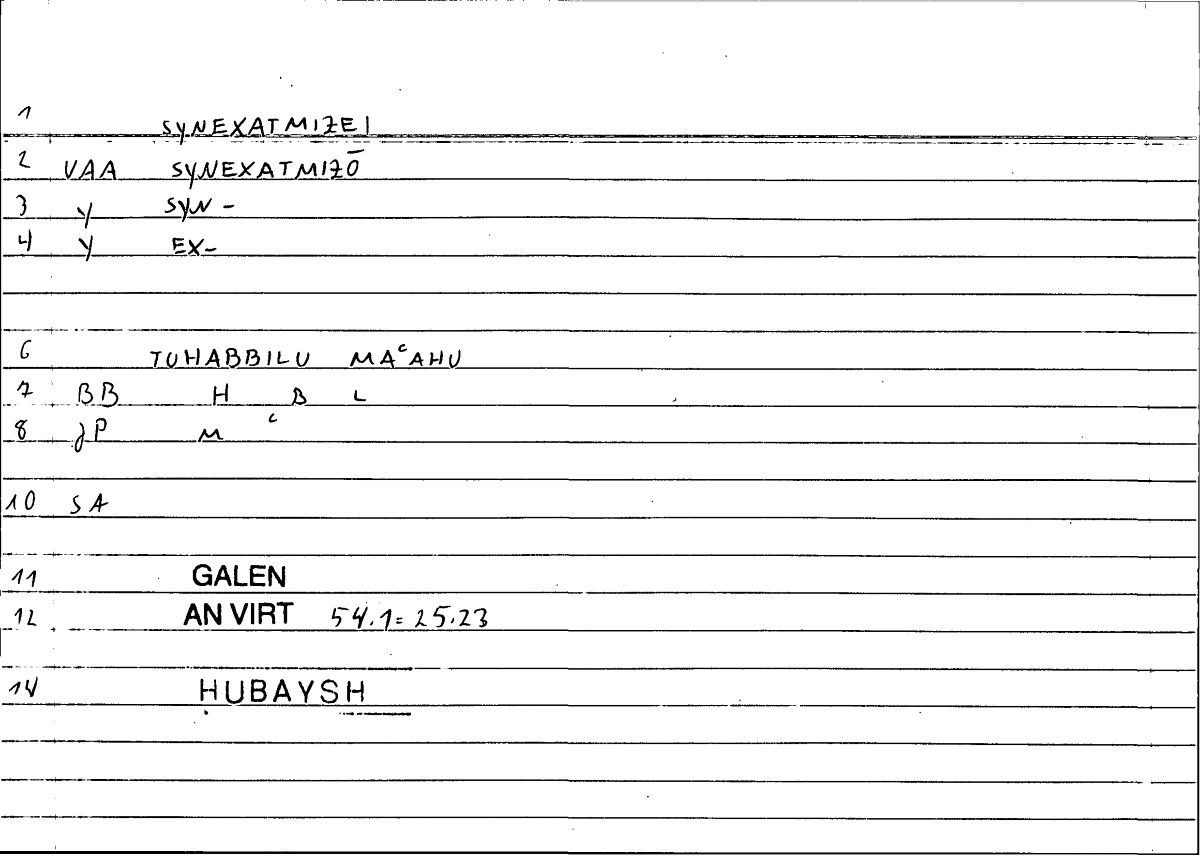 1 SYNEXATMIZEI
2 VAA SYNEXATMIZŌ
3 Y SYN-
4 Y EX-
6 TUHABBILU MAᶜAHU
7 BB H B L
8 JP M ᶜ
10 SA
11 GALEN
12 AN VIRT 54.1=25.23
14 ḤUBAYSH